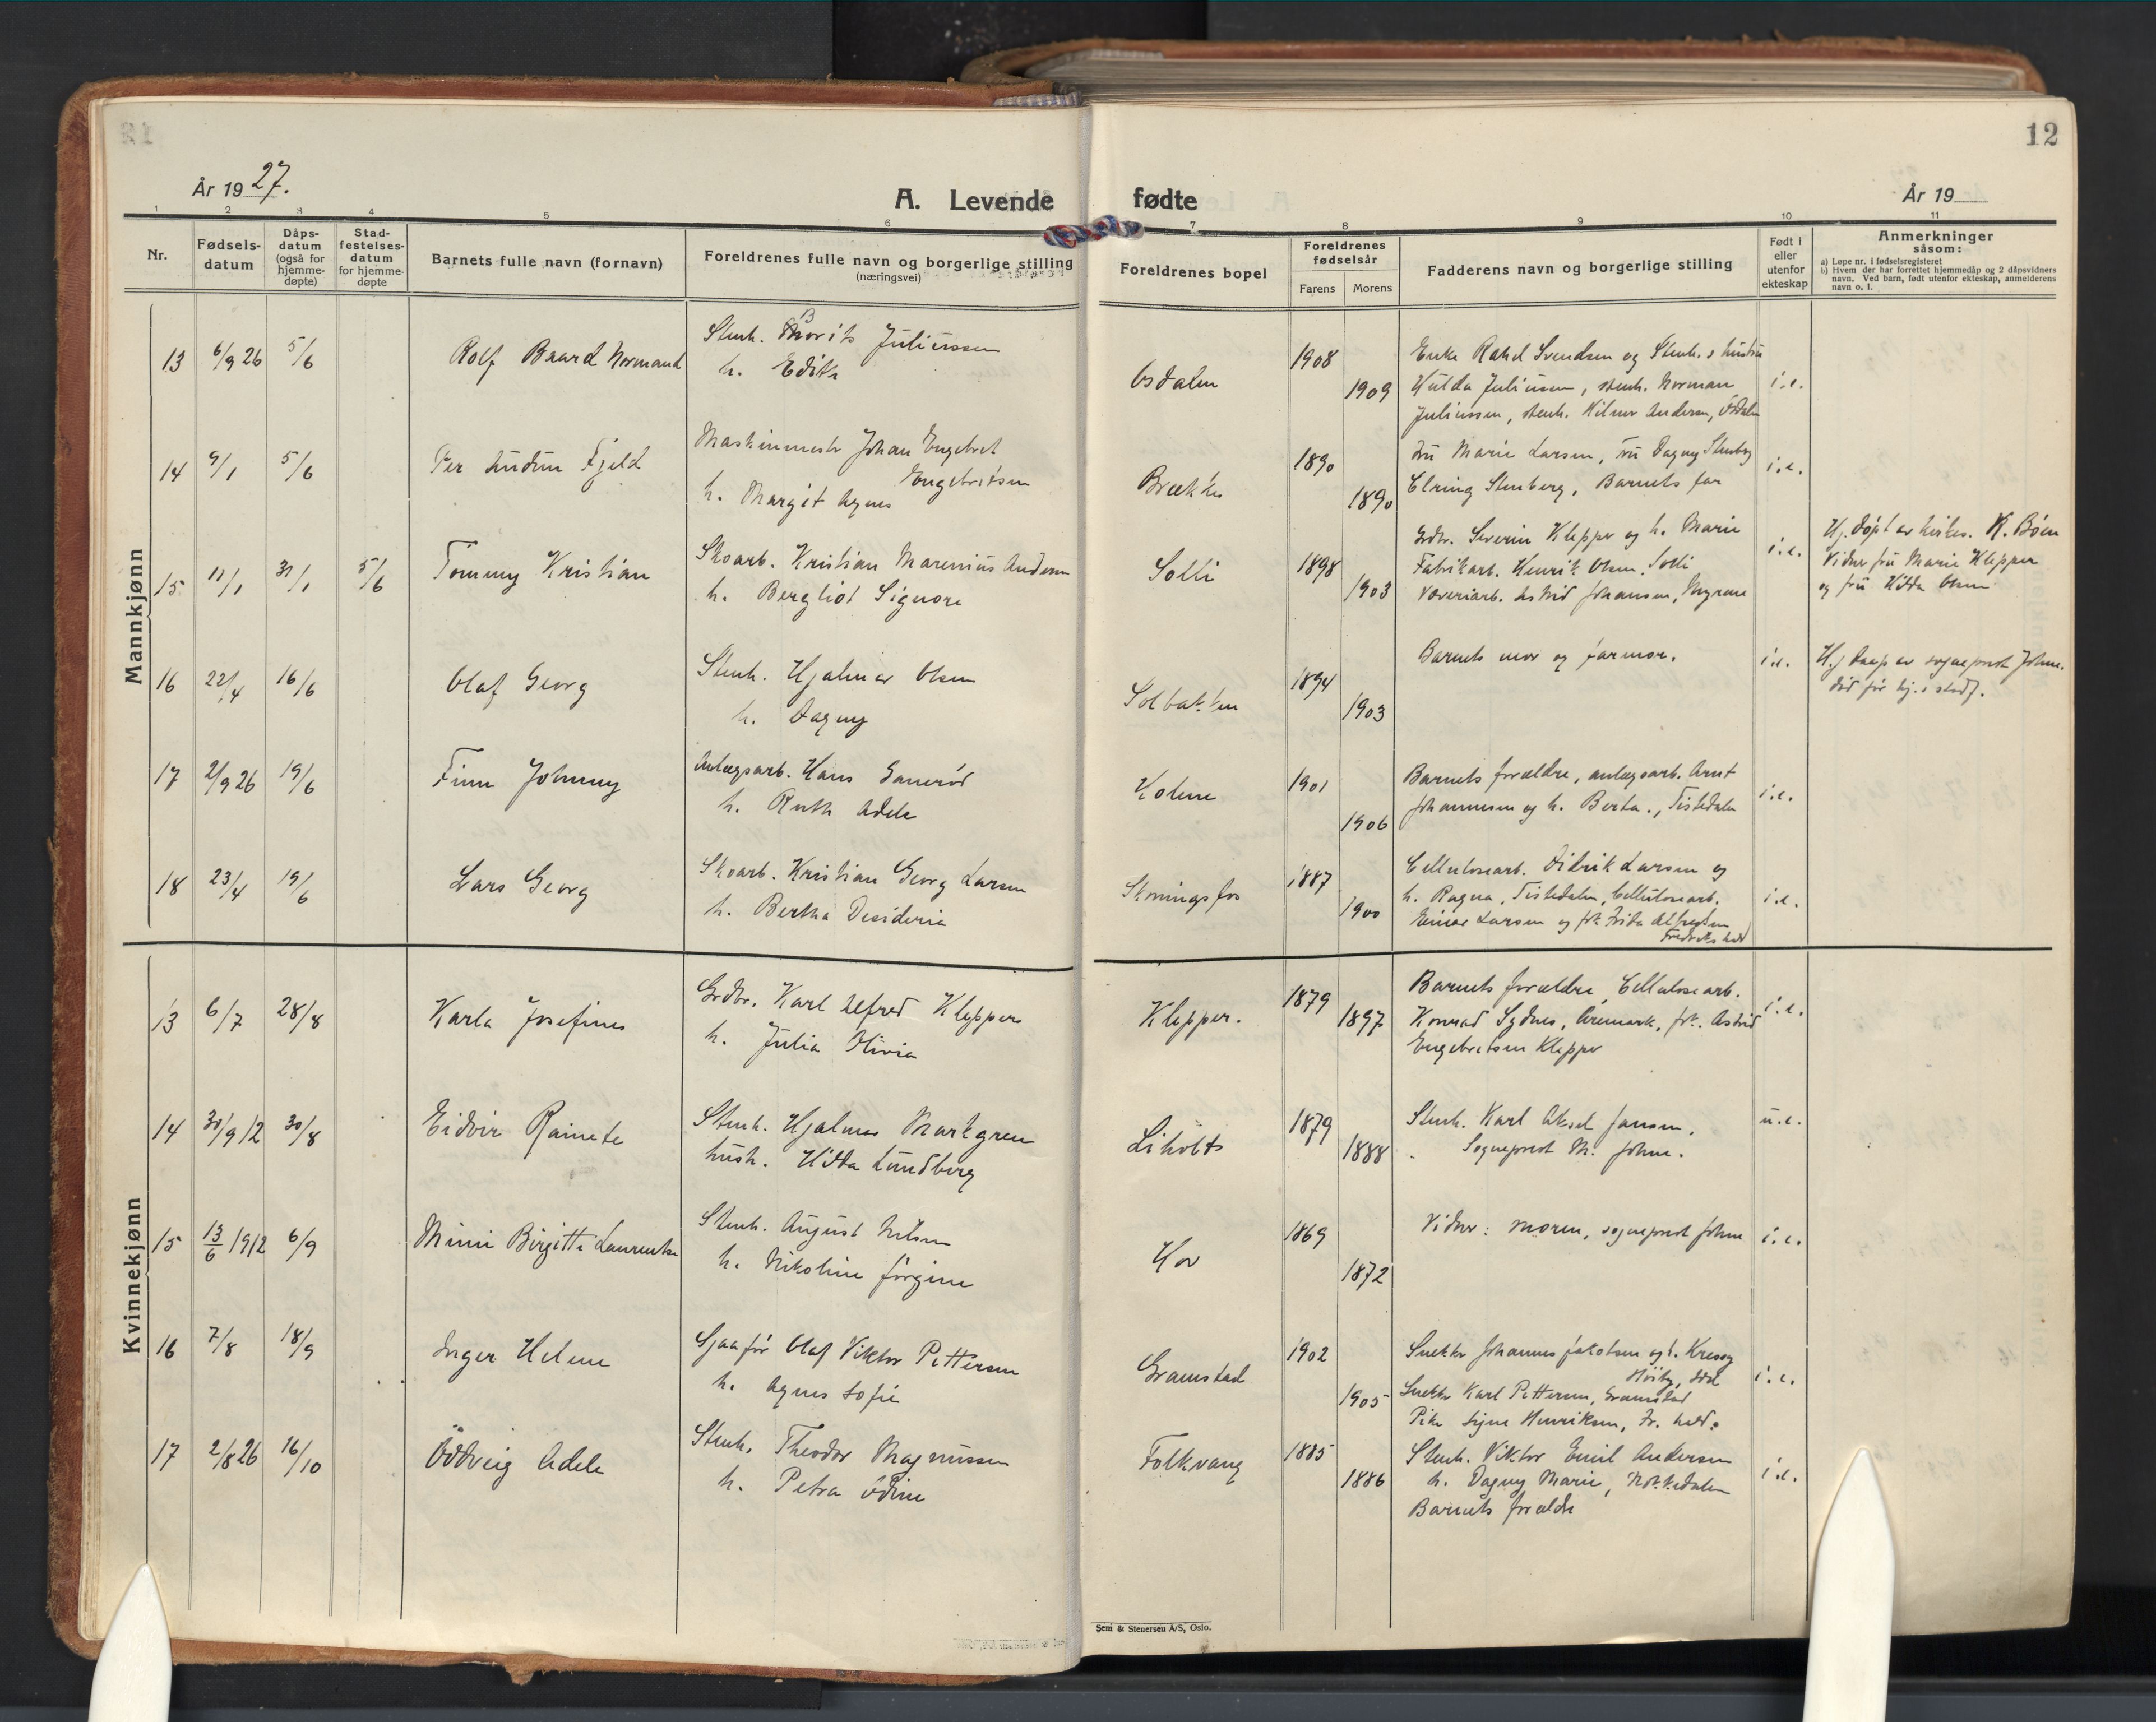 12
År 1927.
A. Levende fødte
År 19
1 2 3 4 5 6 7 8 9 10 11
Nr.
Fødsels-
datum
Dåps-
datum
(også for
hjemme-
døpte)
Stad-
festelses-
datum
for hjemme-
døpte
Barnets fulle navn (fornavn)
Foreldrenes fulle navn og borgerlige stilling
(næringsvei)
Foreldrenes bopel
Foreldrenes
fødselsår
Farens Morens
Fadderens navn og borgerlige stilling
Født i
eller
utenfor
ekteskap
Anmerkninger
såsom:
a) Løpe nr. i fødselsregisteret
b) Hvem der har forrettet hjemmedåp og 2 dåpsvidners
navn. Ved barn, født utenfor ekteskap, anmelderens
navn o. l.
Mannkjønn
13 6/9 26 5/6 Rolf Baard Normand
Stenh. Juliussen
h. Edith
1908
1909
Enke Rakel Svendsen og Stenh.s hustru
Hulda Juliussen, stenh. Norman
Juliussen, stenh. Hilmer Andersen,
i.e.
14 9/1 5/6 Per Audun Fjeld
Maskinmestr Johan Engebret
Engebretsen
h. Margit Agnes
Brække
1890
1890
Fru Marie Larsen, fru Dagny Stenberg
Stenberg, Barnets far
i.e.
15 11/1 31/1 5/6 Tommy Kristian
Skoarb. Kristian Marenius Andersen
h. Bergliot Signora
Solli
1898
1903
Grdbr. Severin Klepper og h. Marie
Fabrikarb. Henrik Olsen, Solli
Væveriarb. Astrid Johansen,
i.e.
Hj. døpt av kirkes. K. Bøen
Vidner fru Marie Klepper
og fru Hilda Olsen
16 22/4 16/6 Olaf Georg
Stenh. Hjalmar Olsen
h. Dagny
Solbakken
1894
1903
Barnets mor og farmor.
i.e.
Hj. daap av sogneprest Johne.
død før hj.s stadf.
17 2/9 26 19/6 Finn Johnny
Anlægsarb. Hans Sanerød
h. Ruth Adele
Holene
1901
1906
Barnets forældre, anlægsarb. Arnt
Johannesen og h. Berta., Tistedalen
i.e.
18 23/4 19/6 Lars Georg
Skoarb. Kristian Georg Larsen
h. Bertha Desideria
Skonningsfos
1887
1900
Cellulosearb. Didrik Larsen og
h. Ragna, Tistedalen, Cellulosearb.
Einar Larsen og frk. Frida Alfredsen
Fredrikshald
i.e.
Kvinnekjønn
13 6/7 28/8 Karla Josefine
Grdbr. Karl Alfred Klepper
h. Julia Olivia
Klepper.
1879
1897
Barnets forældre, Cellulosearb.
Konrad Sydnes, Aremark, frk. Astrid
Engebretsen Klepper
i.e.
14 30/9 12 30/8 Eidvir Rainete
Stenh. Hjalmar Markgren
hush. Hilda Lundberg
Liholt
1879
1888
Stenh. Karl Aksel Jansen.
Sogneprest M. Johne.
u.e.
15 13/6 1912 6/9 Minni Birgitte Laurentse
Stenh. August Nilsen
h. Nikoline Jørgine
Hov
1869
1872
Vidner: moren, sogneprest Johne
i.e.
16 7/8 18/9 Inger Helene
Sjaafør Olaf Viktor Pettersen
h. Agnes Sofie
Gramstad
1902
1905
Snekker Johannes Jakobsen og h.
Snekker Karl Pettersen, Gramstad
Pike Signe Henriksen, Fr.hald.
i.e.
17 2/8 26 16/10 Oddveig Adele
Stenh. Theodor Magnussen
h. Petra Odine
Folkvang
1885
1886
Stenh. Viktor Emil Andersen
h. Dagny Marie,
Barnets forældre
i.e.
Sem & Stenersen A/S, Oslo.